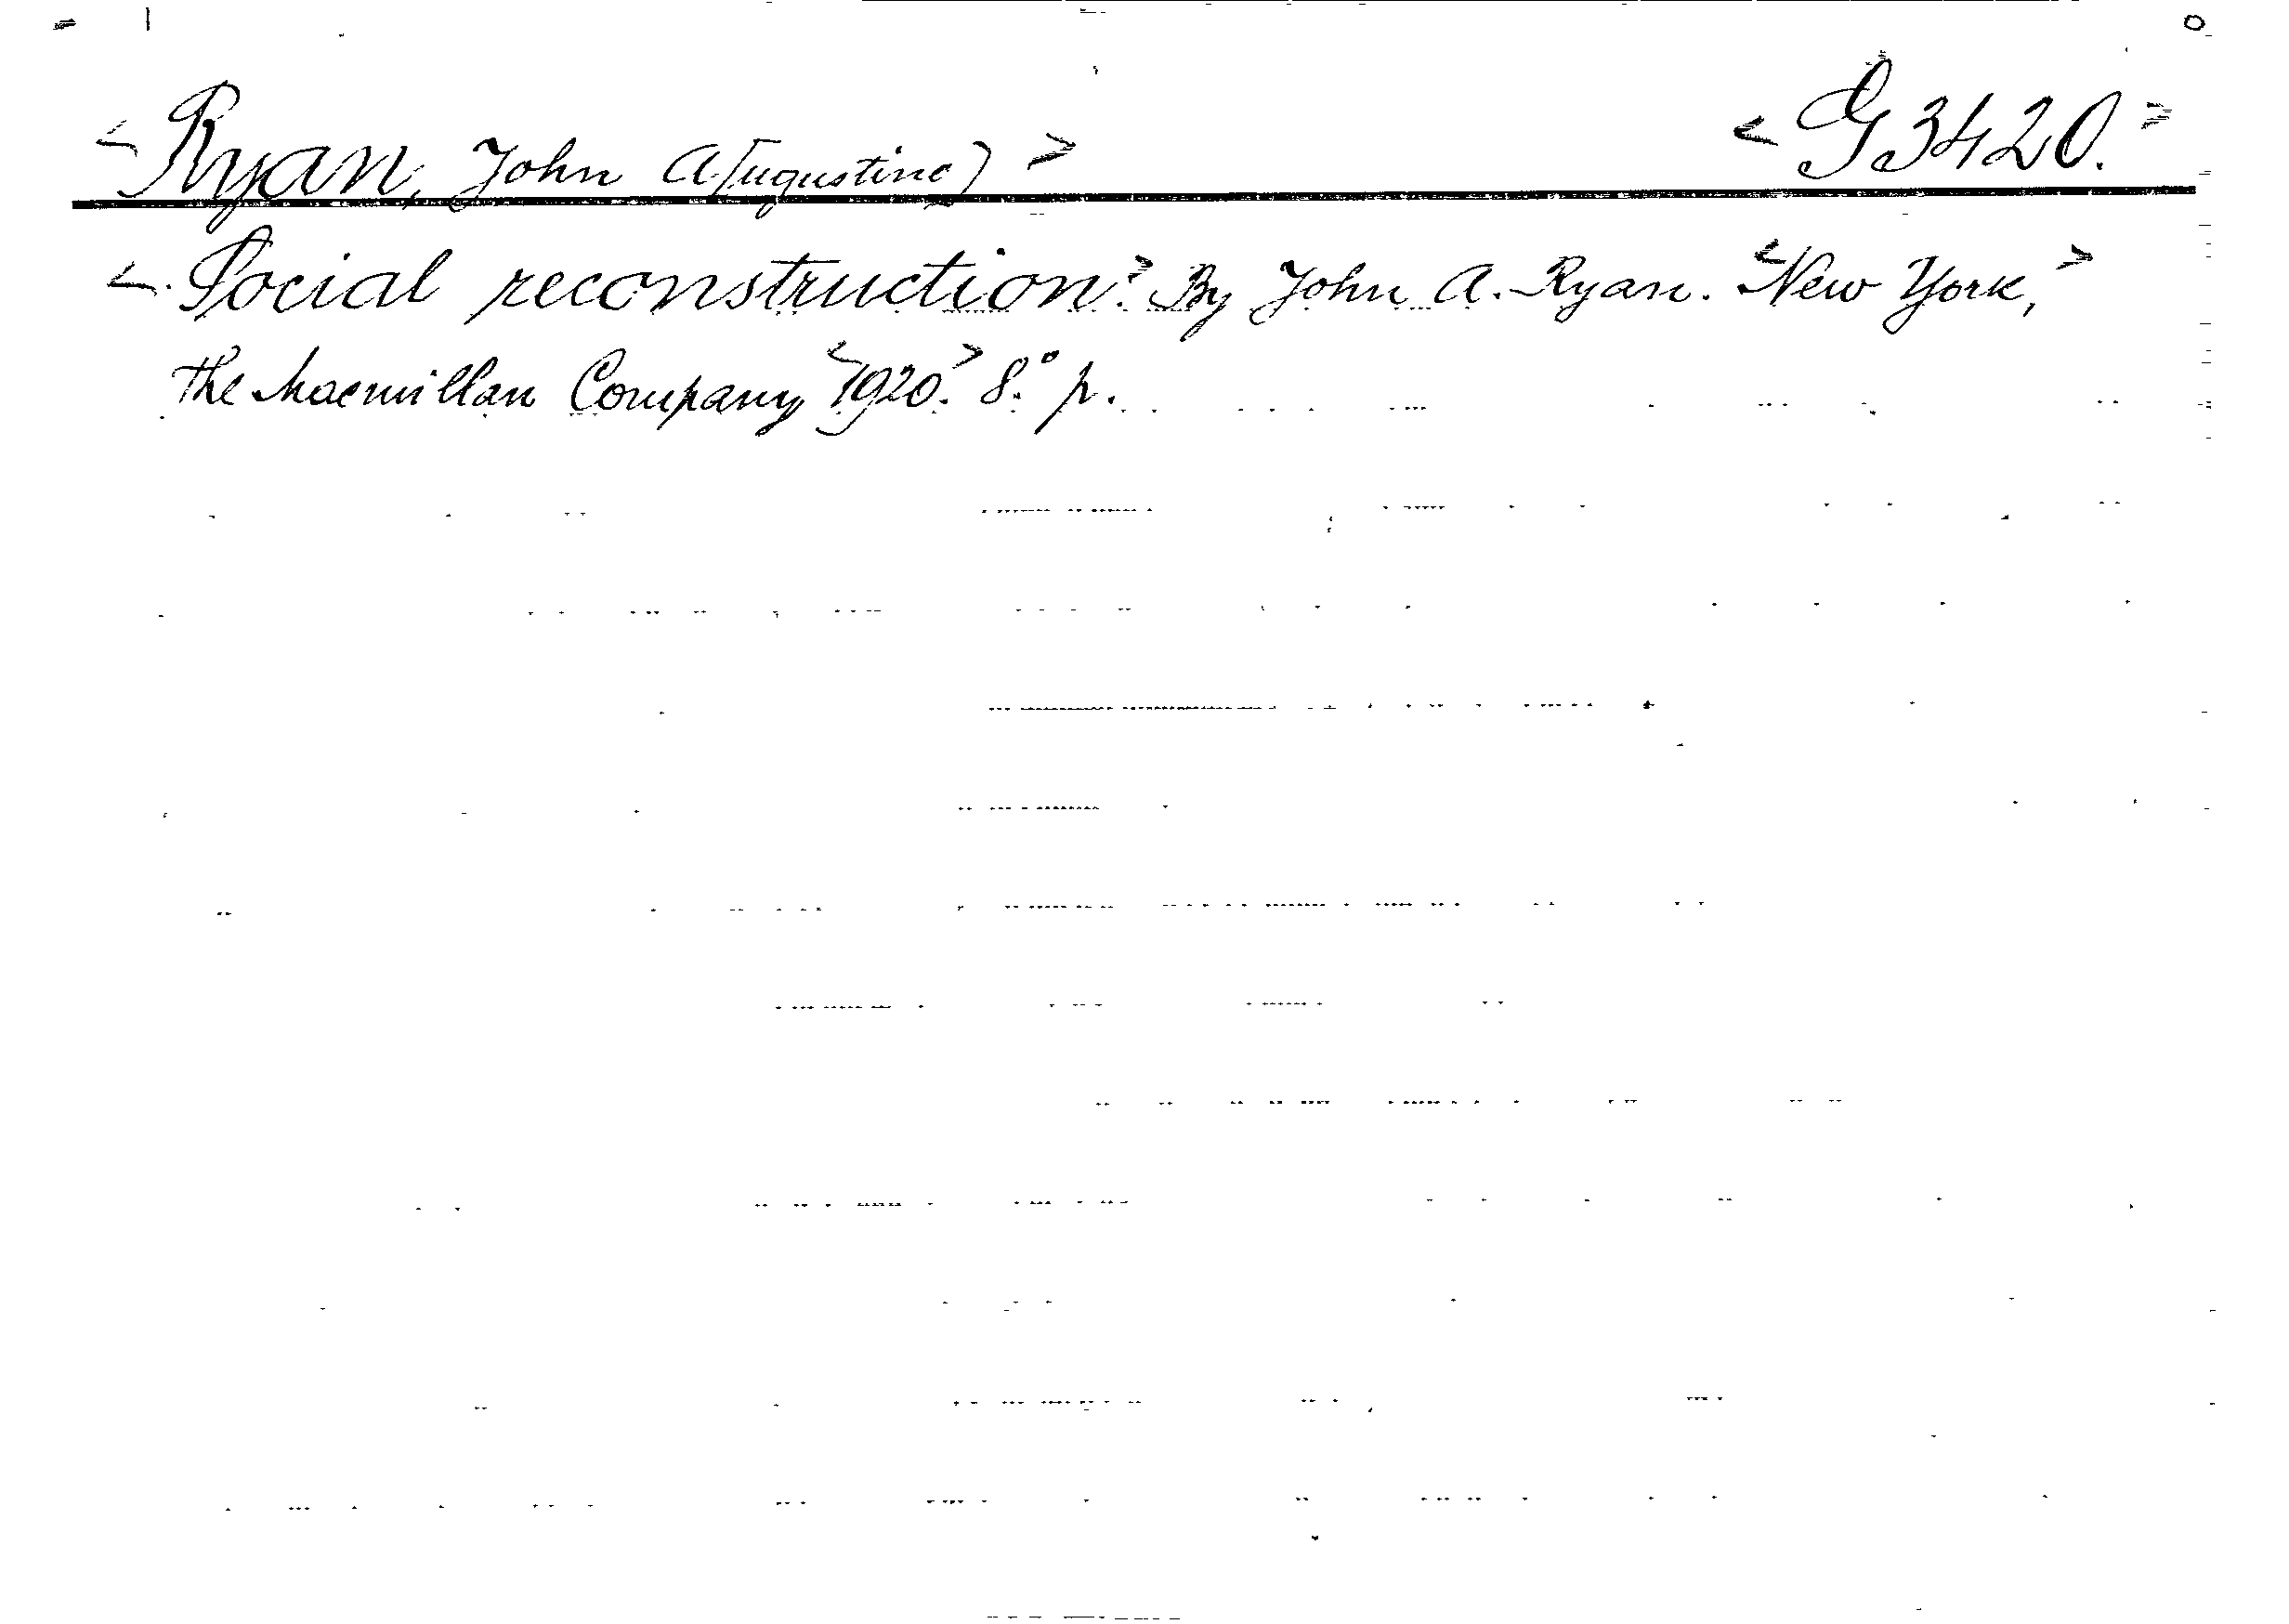 <Ryan, John A[ugustine]> <G3420.>
<Social reconstruction.> By John A. Ryan. <New York,>
the Macmillan Company <1920.> 8.° p.